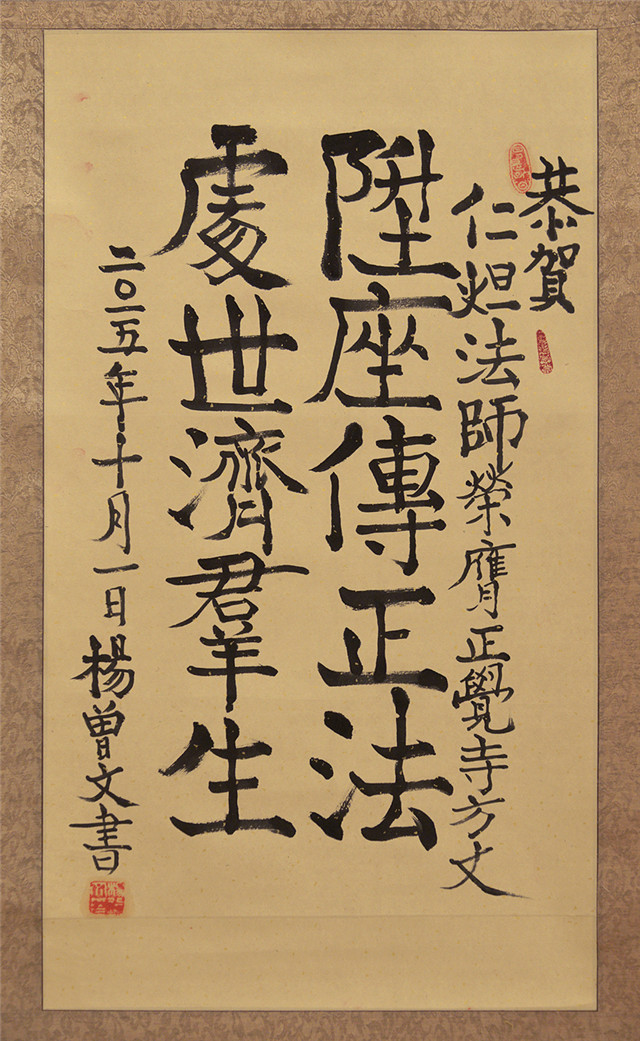 恭賀
仁炟法師榮膺正覺寺方丈
陞座傳正法
處世濟群生
二〇一五年十月一日楊曾文書